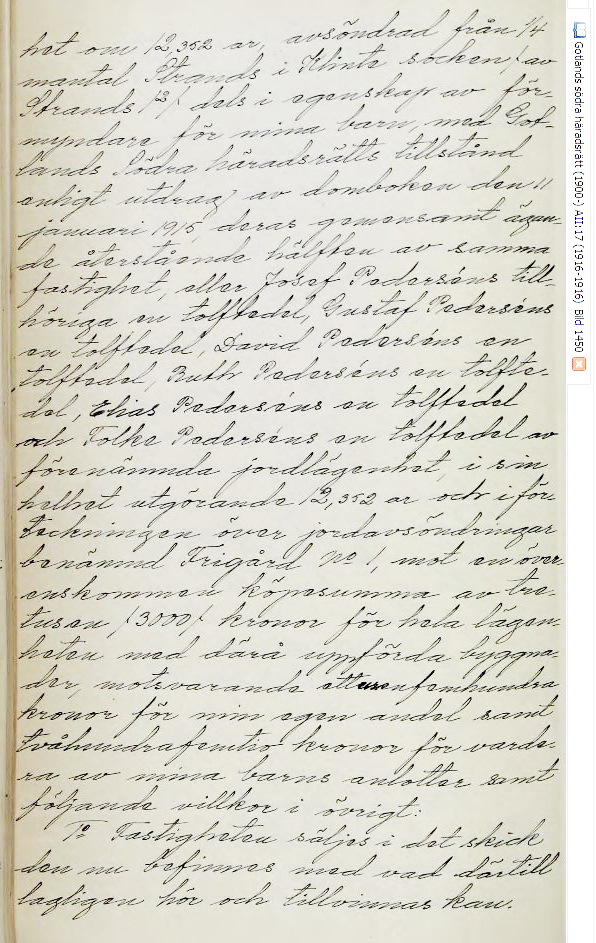 het om 12,352 ar, avsöndrad från 1/4
mantal Strands i Klinte socken, /av
Strands 12/ dels i egenskap av för-
myndare för mina barn, med Got-
lands Södra häradsrätts tillstånd
enligt utdrag av domboken den 11
januari 1915, deras gemensamt ägan-
de återstående hälften av samma
fastighet, eller Josef Pederséns till-
höriga en tolftedel, Gustaf Pederséns
en tolftedel, David Pederséns en
tolftedel, Ruth Pederséns en tolfte-
del, Elias Pederséns en tolftedel
och Folke Pederséns en tolftedel av
förenämnda jordlägenhet, i sin
helhet utgörande 12,352 ar och i för-
teckningen över jordavsöndringar
benämnd Frigård No 1, mot en över-
enskommen köpesumma av tre-
tusen /3000/ kronor för hela lägen-
heten med därå uppförda byggna-
der, motsvarande ettusenfemhundra
kronor för min egen andel samt
tvåhundrafemtio kronor för varde-
ra av mina barns anlotter samt
följande villkor i övrigt:
1o Fastigheten säljes i det skick
den nu befinnes med vad därtill
lagligen hör och tillvinnas kan.
Gotlands södra häradsrätt (1900-) AII:17 (1916-1916) Bild 1450